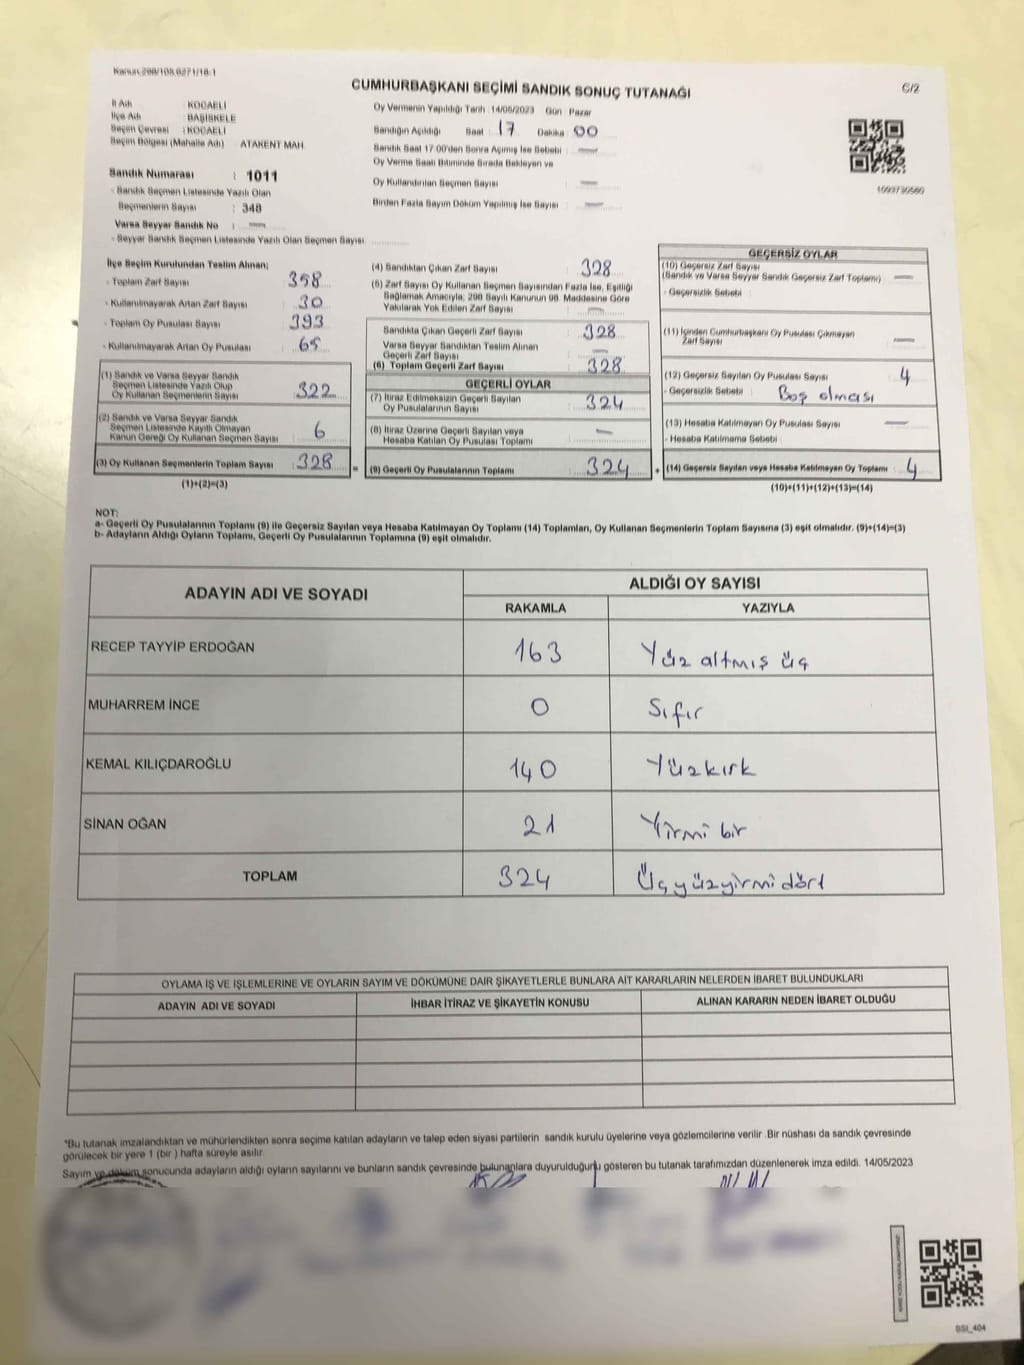 Kanun:298/105,6271/18.1
CUMHURBAŞKANI SEÇİMİ SANDIK SONUÇ TUTANAĞI
C/2
İl Adı : KOCAELİ
İlçe Adı : BAŞİSKELE
Seçim Çevresi : KOCAELİ
Seçim Bölgesi (Mahalle Adı) ATAKENT MAH.
Sandık Numarası : 1011
- Sandık Seçmen Listesinde Yazılı Olan
Seçmenlerin Sayısı : 348
Varsa Seyyar Sandık No : —
- Seyyar Sandık Seçmen Listesinde Yazılı Olan Seçmen Sayısı
Oy Vermenin Yapıldığı Tarih :14/05/2023 Gün : Pazar
Sandığın Açıldığı Saat : 17 Dakika : 00
Sandık Saat 17:00'den Sonra Açılmış İse Sebebi : —
Oy Verme Saati Bitiminde Sırada Bekleyen ve
Oy Kullandırılan Seçmen Sayısı : —
Birden Fazla Sayım Döküm Yapılmış İse Sayısı : —
İlçe Seçim Kurulundan Teslim Alınan;
- Toplam Zarf Sayısı : 358
- Kullanılmayarak Artan Zarf Sayısı : 30
- Toplam Oy Pusulası Sayısı : 393
- Kullanılmayarak Artan Oy Pusulası : 65
(1) Sandık ve Varsa Seyyar Sandık
Seçmen Listesinde Yazılı Olup
Oy Kullanan Seçmenlerin Sayısı : 322
(2) Sandık ve Varsa Seyyar Sandık
Seçmen Listesinde Kayıtlı Olmayan
Kanun Gereği Oy Kullanan Seçmen Sayısı : 6
(3) Oy Kullanan Seçmenlerin Toplam Sayısı : 328
(1)+(2)=(3)
(4) Sandıktan Çıkan Zarf Sayısı : 328
(5) Zarf Sayısı Oy Kullanan Seçmen Sayısından Fazla İse, Eşitliği
Sağlamak Amacıyla, 298 Sayılı Kanunun 98. Maddesine Göre
Yakılarak Yok Edilen Zarf Sayısı : —
Sandıkta Çıkan Geçerli Zarf Sayısı : 328
Varsa Seyyar Sandıktan Teslim Alınan
Geçerli Zarf Sayısı : —
(6) Toplam Geçerli Zarf Sayısı : 328
GEÇERLİ OYLAR
(7) İtiraz Edilmeksizin Geçerli Sayılan
Oy Pusulalarının Sayısı : 324
(8) İtiraz Üzerine Geçerli Sayılan veya
Hesaba Katılan Oy Pusulası Toplamı : —
= (9) Geçerli Oy Pusulalarının Toplamı : 324 +
GEÇERSİZ OYLAR
(10) Geçersiz Zarf Sayısı
(Sandık ve Varsa Seyyar Sandık Geçersiz Zarf Toplamı) : —
- Geçersizlik Sebebi :
(11) İçinden Cumhurbaşkanı Oy Pusulası Çıkmayan
Zarf Sayısı : —
(12) Geçersiz Sayılan Oy Pusulası Sayısı : 4
- Geçersizlik Sebebi : Boş olması
(13) Hesaba Katılmayan Oy Pusulası Sayısı : —
- Hesaba Katılmama Sebebi
(14) Geçersiz Sayılan veya Hesaba Katılmayan Oy Toplamı : 4
(10)+(11)+(12)+(13)=(14)
NOT:
a- Geçerli Oy Pusulalarının Toplamı (9) ile Geçersiz Sayılan veya Hesaba Katılmayan Oy Toplamı (14) Toplamları, Oy Kullanan Seçmenlerin Toplam Sayısına (3) eşit olmalıdır. (9)+(14)=(3)
b- Adayların Aldığı Oyların Toplamı, Geçerli Oy Pusulalarının Toplamına (9) eşit olmalıdır.
ADAYIN ADI VE SOYADI
ALDIĞI OY SAYISI
RAKAMLA YAZIYLA
RECEP TAYYİP ERDOĞAN 163 Yüz altmış üç
MUHARREM İNCE 0 Sıfır
KEMAL KILIÇDAROĞLU 140 Yüzkırk
SİNAN OĞAN 21 Yirmi bir
TOPLAM 324 Üçyüzyirmidört
OYLAMA İŞ VE İŞLEMLERİNE VE OYLARIN SAYIM VE DÖKÜMÜNE DAİR ŞİKAYETLERLE BUNLARA AİT KARARLARIN NELERDEN İBARET BULUNDUKLARI
ADAYIN ADI VE SOYADI İHBAR İTİRAZ VE ŞİKAYETİN KONUSU ALINAN KARARIN NEDEN İBARET OLDUĞU
*Bu tutanak imzalandıktan ve mühürlendikten sonra seçime katılan adayların ve talep eden siyasi partilerin sandık kurulu üyelerine veya gözlemcilerine verilir .Bir nüshası da sandık çevresinde
görülecek bir yere 1 (bir ) hafta süreyle asılır.
Sayım ve döküm sonucunda adayların aldığı oyların sayılarını ve bunların sandık çevresinde bulunanlara duyurulduğunu gösteren bu tutanak tarafımızdan düzenlenerek imza edildi. 14/05/2023
SSI_404